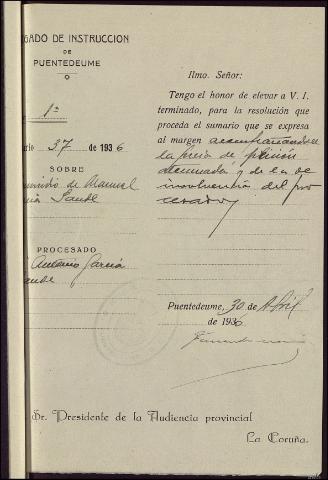 GADO DE INSTRUCCION
DE
PUENTEDEUME
1ª
ario 37 de 1936
SOBRE
de Manuel
Sande
PROCESADO
Antonio García
ande
Ilmo. Señor:
Tengo el honor de elevar a V. I.
terminado, para la resolución que
proceda el sumario que se expresa
al margen acompañándose
la pieza de prisión
atenuada y de la de
insolvencia del pro
cesado
Puentedeume, 30 de Abril
de 1936
Sr. Presidente de la Audiencia provincial
La Coruña.